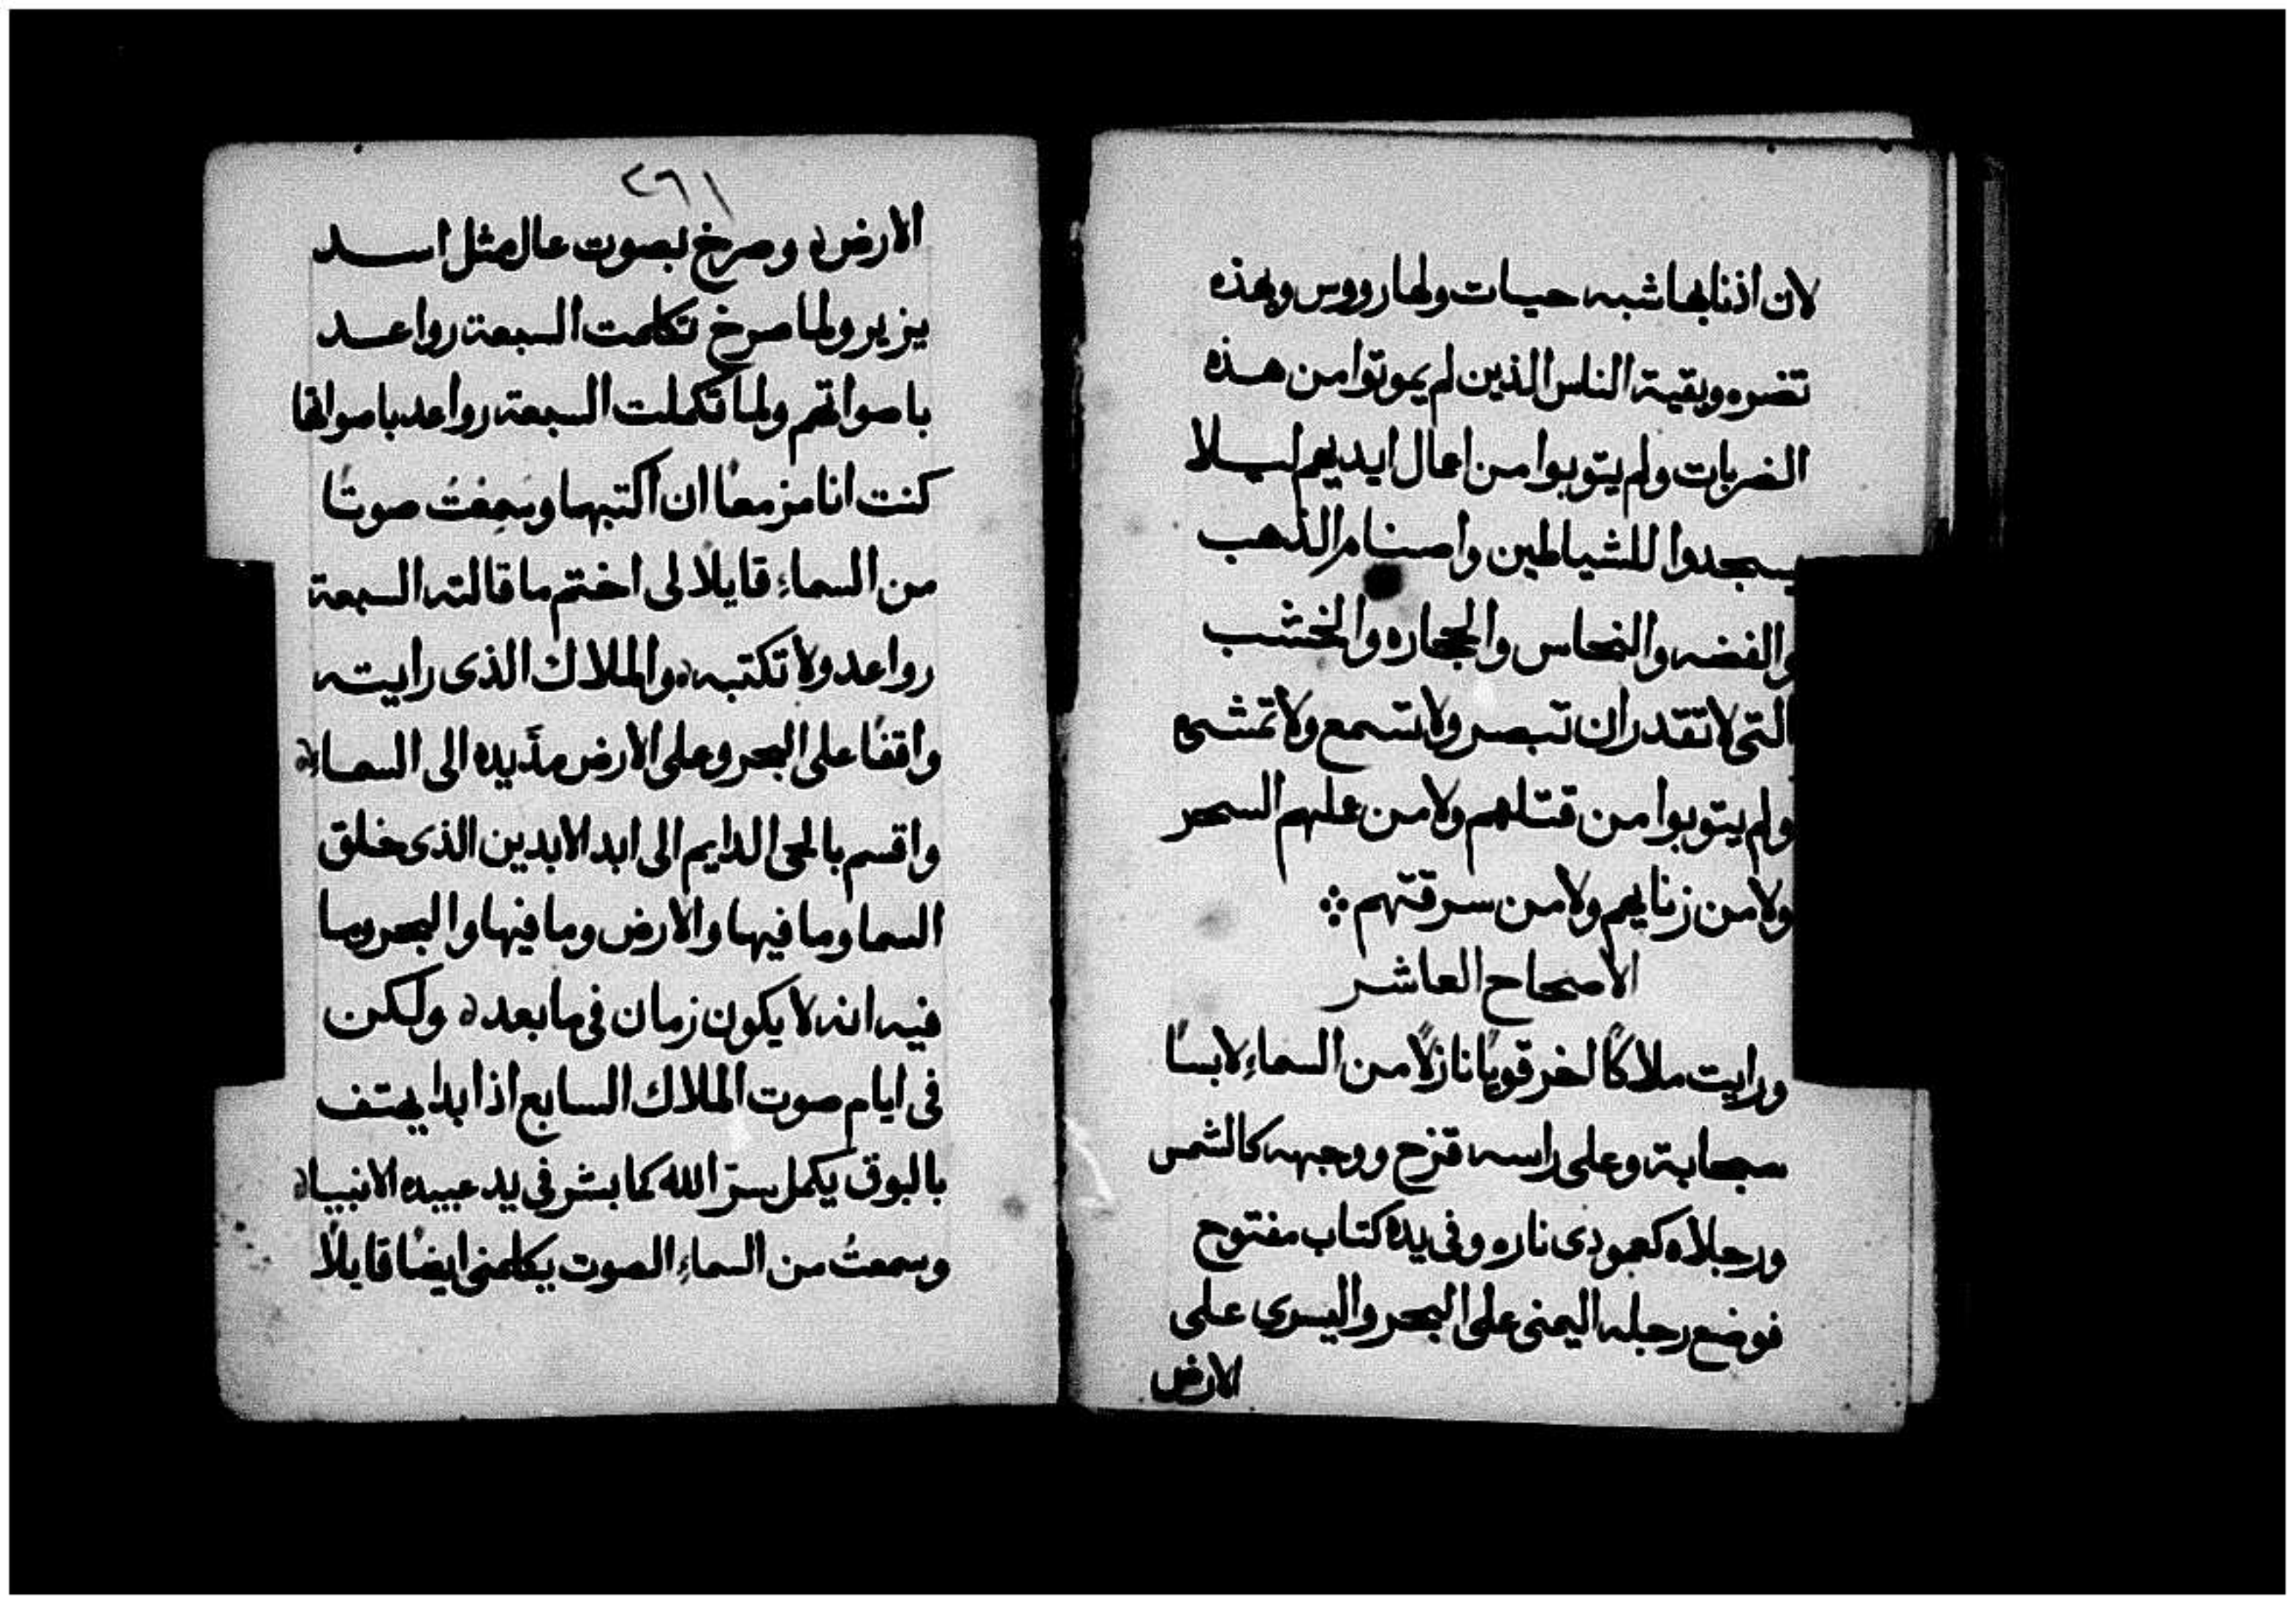 لان اذنابها شبه حيات ولها رووس وبهذه
تضره وبقية الناس الذين لم يموتوا من هذه
الضربات ولم يتوبوا من اعمال ايديهم ليلا
يسجدوا للشياطين واصنام الذهب
والفضه والنحاس والحجاره والخشب
التى لا تقدر ان تبصر ولا تسمع ولا تمشى
ولم يتوبوا من قتلهم ولا من عملهم السحر
ولا من زنايهم ولا من سرقتهم
الاصحاح العاشر
ورايت ملاكًا اخر قويًا نازلًا من السماءِ لابسًا
سحابة وعلى راسه قزح ووجهه كالشمس
ورجلاه كعمودى ناره وفى يده كتاب مفتوح
فوضع رجله اليمنى على البحر واليسرى على
الارض
٢٦١
الارض وصرخ بصوت عال مثل اسد
يزير ولما صرخ تكلمت السبعة رواعد
باصواتهم ولما تكملت السبعة رواعد باصواتها
كنت انا مزمعًا ان اكتبها وسمعتُ صوتًا
من السماءِ قايلا لى اختم ما قالته السبعة
رواعد ولا تكتبه والملاك الذى رايته
واقفًا على البحر وعلى الارض مدّ يده الى السماء
واقسم بالحى الدايم الى ابد الابدين الذى خلق
السما وما فيها والارض وما فيها والبحر وما
فيه انه لا يكون زمان فى ما بعد ولكن
فى ايام صوت الملاك السابع اذا بدا يهتف
بالبوق يكمل سرّ الله كما بشر فى يد عبيده الانبيا
وسمعتُ من السماءِ الصوت يكلمنى ايضًا قايلًا